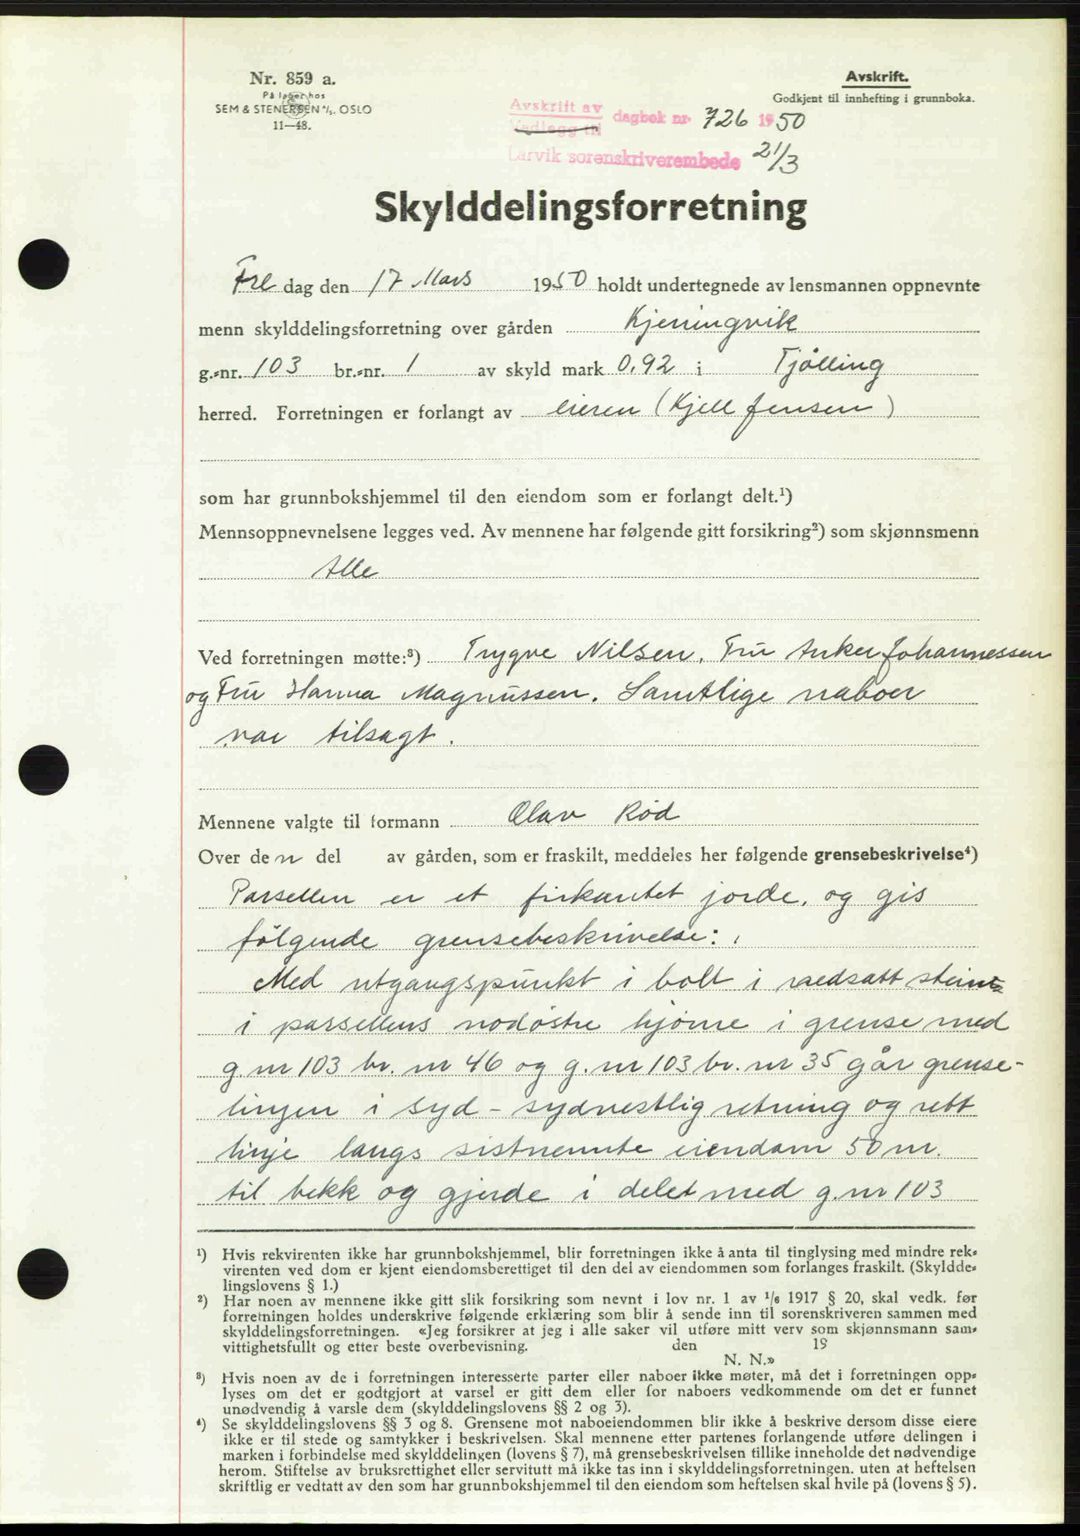 Nr. 859 a.
På lager hos
SEM & STENERSEN A/S. OSLO
11—48.
Avskrift.
Godkjent til innhefting i grunnboka.
Avskrift av
Vedlegg til
dagbok nr. 726 1950
Larvik sorenskriverembede 21/3
Skylddelingsforretning
Fre dag den 17 Mars 1950 holdt undertegnede av lensmannen oppnevnte
menn skylddelingsforretning over gården Kjeningvik
g.-nr. 103 br.-nr. 1 av skyld mark 0,92 i Tjølling
herred. Forretningen er forlangt av eieren (Kjell Jensen)
som har grunnbokshjemmel til den eiendom som er forlangt delt.¹)
Mennsoppnevnelsene legges ved. Av mennene har følgende gitt forsikring²) som skjønnsmenn
Alle
Ved forretningen møtte:³) Trygve Nilsen, Fru Anker Johannessen
og Fru Hanna Magnussen. Samtlige naboer
var tilsagt.
Mennene valgte til formann Olav Rød
Over den del av gården, som er fraskilt, meddeles her følgende grensebeskrivelse⁴)
Parsellen er et firkantet jorde, og gis
følgende grensebeskrivelse:
Med utgangspunkt i bolt i nedsatt stein
i parsellens nodøstre hjørne i grense med
g.nr 103 br. nr 46 og g.nr 103 br. nr 35 går grense-
linjen i syd - sydvestlig retning og rett
linje langs sistnemnte eiendom 50 m.
til bekk og gjerde i delet med g.nr 103
¹) Hvis rekvirenten ikke har grunnbokshjemmel, blir forretningen ikke å anta til tinglysing med mindre rek-
virenten ved dom er kjent eiendomsberettiget til den del av eiendommen som forlanges fraskilt. (Skyldde-
lingslovens § 1.)
²) Har noen av mennene ikke gitt slik forsikring som nevnt i lov nr. 1 av 1/6 1917 § 20, skal vedk. før
forretningen holdes underskrive følgende erklæring som blir å sende inn til sorenskriveren sammen med
skylddelingsforretningen. «Jeg forsikrer at jeg i alle saker vil utføre mitt verv som skjønnsmann sam-
vittighetsfullt og etter beste overbevisning. den 19
N. N.»
³) Hvis noen av de i forretningen interesserte parter eller naboer ikke møter, må det i forretningen opp-
lyses om det er godtgjort at varsel er gitt dem eller for naboers vedkommende om det er funnet
unødvendig å varsle dem (skylddelingslovens §§ 2 og 3).
⁴) Se skylddelingslovens §§ 3 og 8. Grensene mot naboeiendommen blir ikke å beskrive dersom disse eiere
ikke er til stede og samtykker i beskrivelsen. Skal mennene etter partenes forlangende utføre delingen i
marken i forbindelse med skylddelingen (lovens § 7), må grensebeskrivelsen tillike inneholde det nødvendige
herom. Stiftelse av bruksrettighet eller servitutt må ikke tas inn i skylddelingsforretningen. uten at heftelsen
skriftlig er vedtatt av den som har grunnbokshjemmel til den eiendom som heftelsen skal hvile på (lovens § 5).